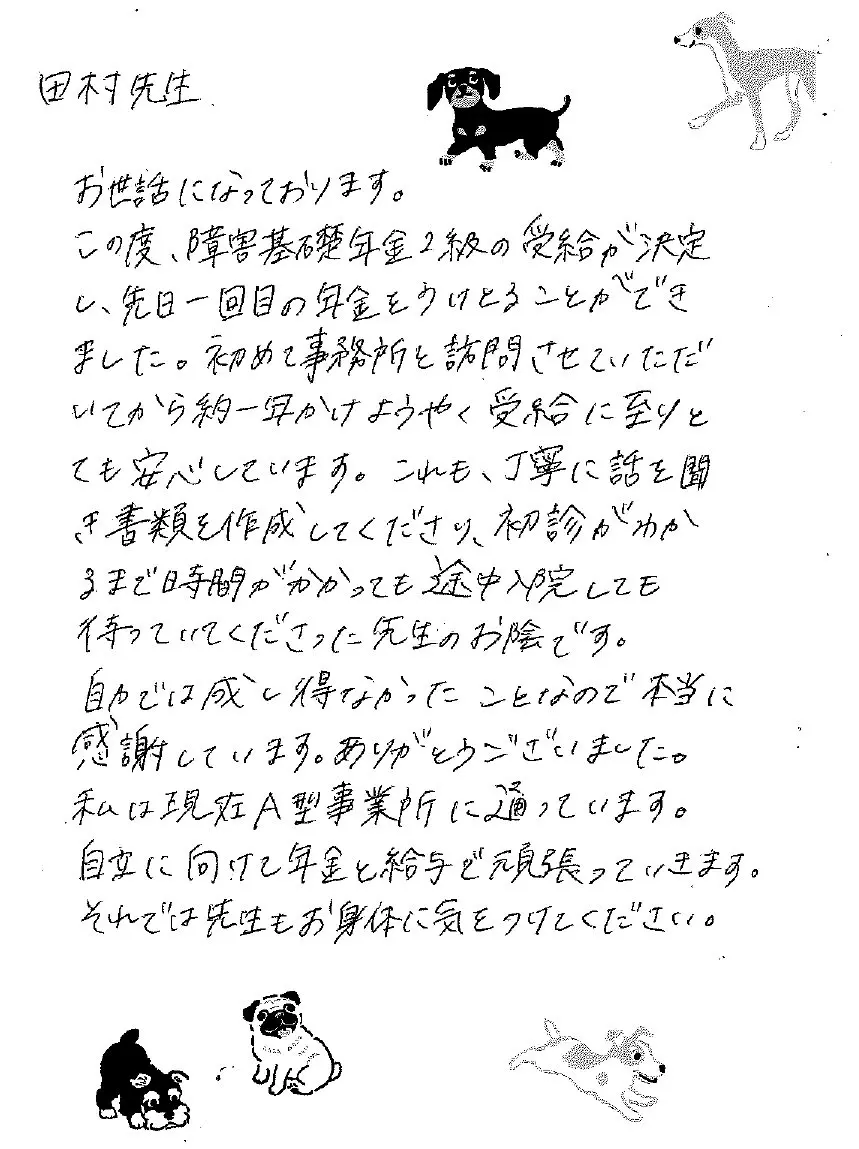 田村先生
お世話になっております。
この度、障害基礎年金2級の受給が決定
し、先日一回目の年金をうけとることができ
ました。初めて事務所を訪問させていただ
いてから約一年かけようやく受給に至りと
ても安心しています。これも、丁寧に話を聞
き書類を作成してくださり、初診がわか
るまで時間がかかっても途中入院しても
待っていてくださった先生のお陰です。
自力では成し得なかったことなので本当に
感謝しています。ありがとうございました。
私は現在A型事業所に通っています。
自立に向けて年金と給与で頑張っていきます。
それでは先生もお身体に気をつけてください。